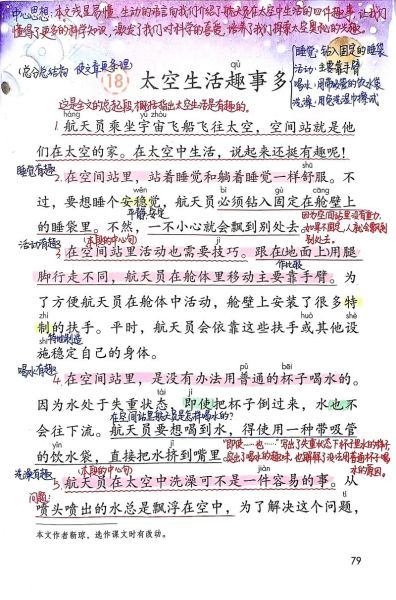 中心思想：本文浅显易懂、生动的语言向我们介绍了航天员在太空中生活的四件趣事，让我们
懂得了更多的科学知识，激发了我们对科学的喜爱，培养了我们探索太空奥秘的兴趣。
睡觉：钻入固定的睡袋
活动：主要靠手臂
喝水：用带吸管的饮水袋
洗澡：用免洗湿巾擦拭
(总分总结构
使文章更条理)
qù
18 太空生活趣事多
这是全文的总起段，概括指出太空生活是有趣的。
háng yǔ zhòu
1.航天员乘坐宇宙飞船飞往太空，空间站就是他
们在太空的家。在太空中生活，说起来还挺有趣呢！
睡觉有趣
shū
2.在空间站里，站着睡觉和躺着睡觉一样舒服。不
wěn bì gù cāng
过，要想睡个安稳觉，航天员必须钻入固定在舱壁上
平静，安定
的睡袋里。不然，一不小心就会飘到别处去。
因为空间站里没有重力，
如果不固定，人就会飘到
别处去。
活动有趣
(本段的中心句)
3.在空间站里活动也需要技巧。跟在(地面上)用腿
作比较
bì
脚行走不同，航天员在舱体里移动主要靠手臂。为
了方便航天员在舱体中活动，舱壁上安装了很多特
zhì huò shè
制的扶手。平时，航天员会依靠这些扶手或其他设
shī 特地制造
施稳定自己的身体。
喝水有趣
bēi
4.在空间站里，是没有办法用普通的杯子喝水的。
tài jí
因为水处于失重状态，即使把杯子倒过来，水也不
在空间站里航天员是怎样喝水的？
会往下流。航天员要想喝到水，得使用一种带吸管
yǐn jǐ
的饮水袋，直接把水挤到嘴里。
“即使……也……”写出了失重状态下杯子里水的特点，
突出了喝水的趣味，也解释了没法用普通杯子喝
水的原因。
洗澡有趣
(本段的中心句)
jiàn
5.航天员在太空中洗澡可不是一件容易的事。从
问题：
喷头喷出的水总是飘浮在空中，为了解决这个问题，
本文作者靳琼，选作课文时有改动。
79